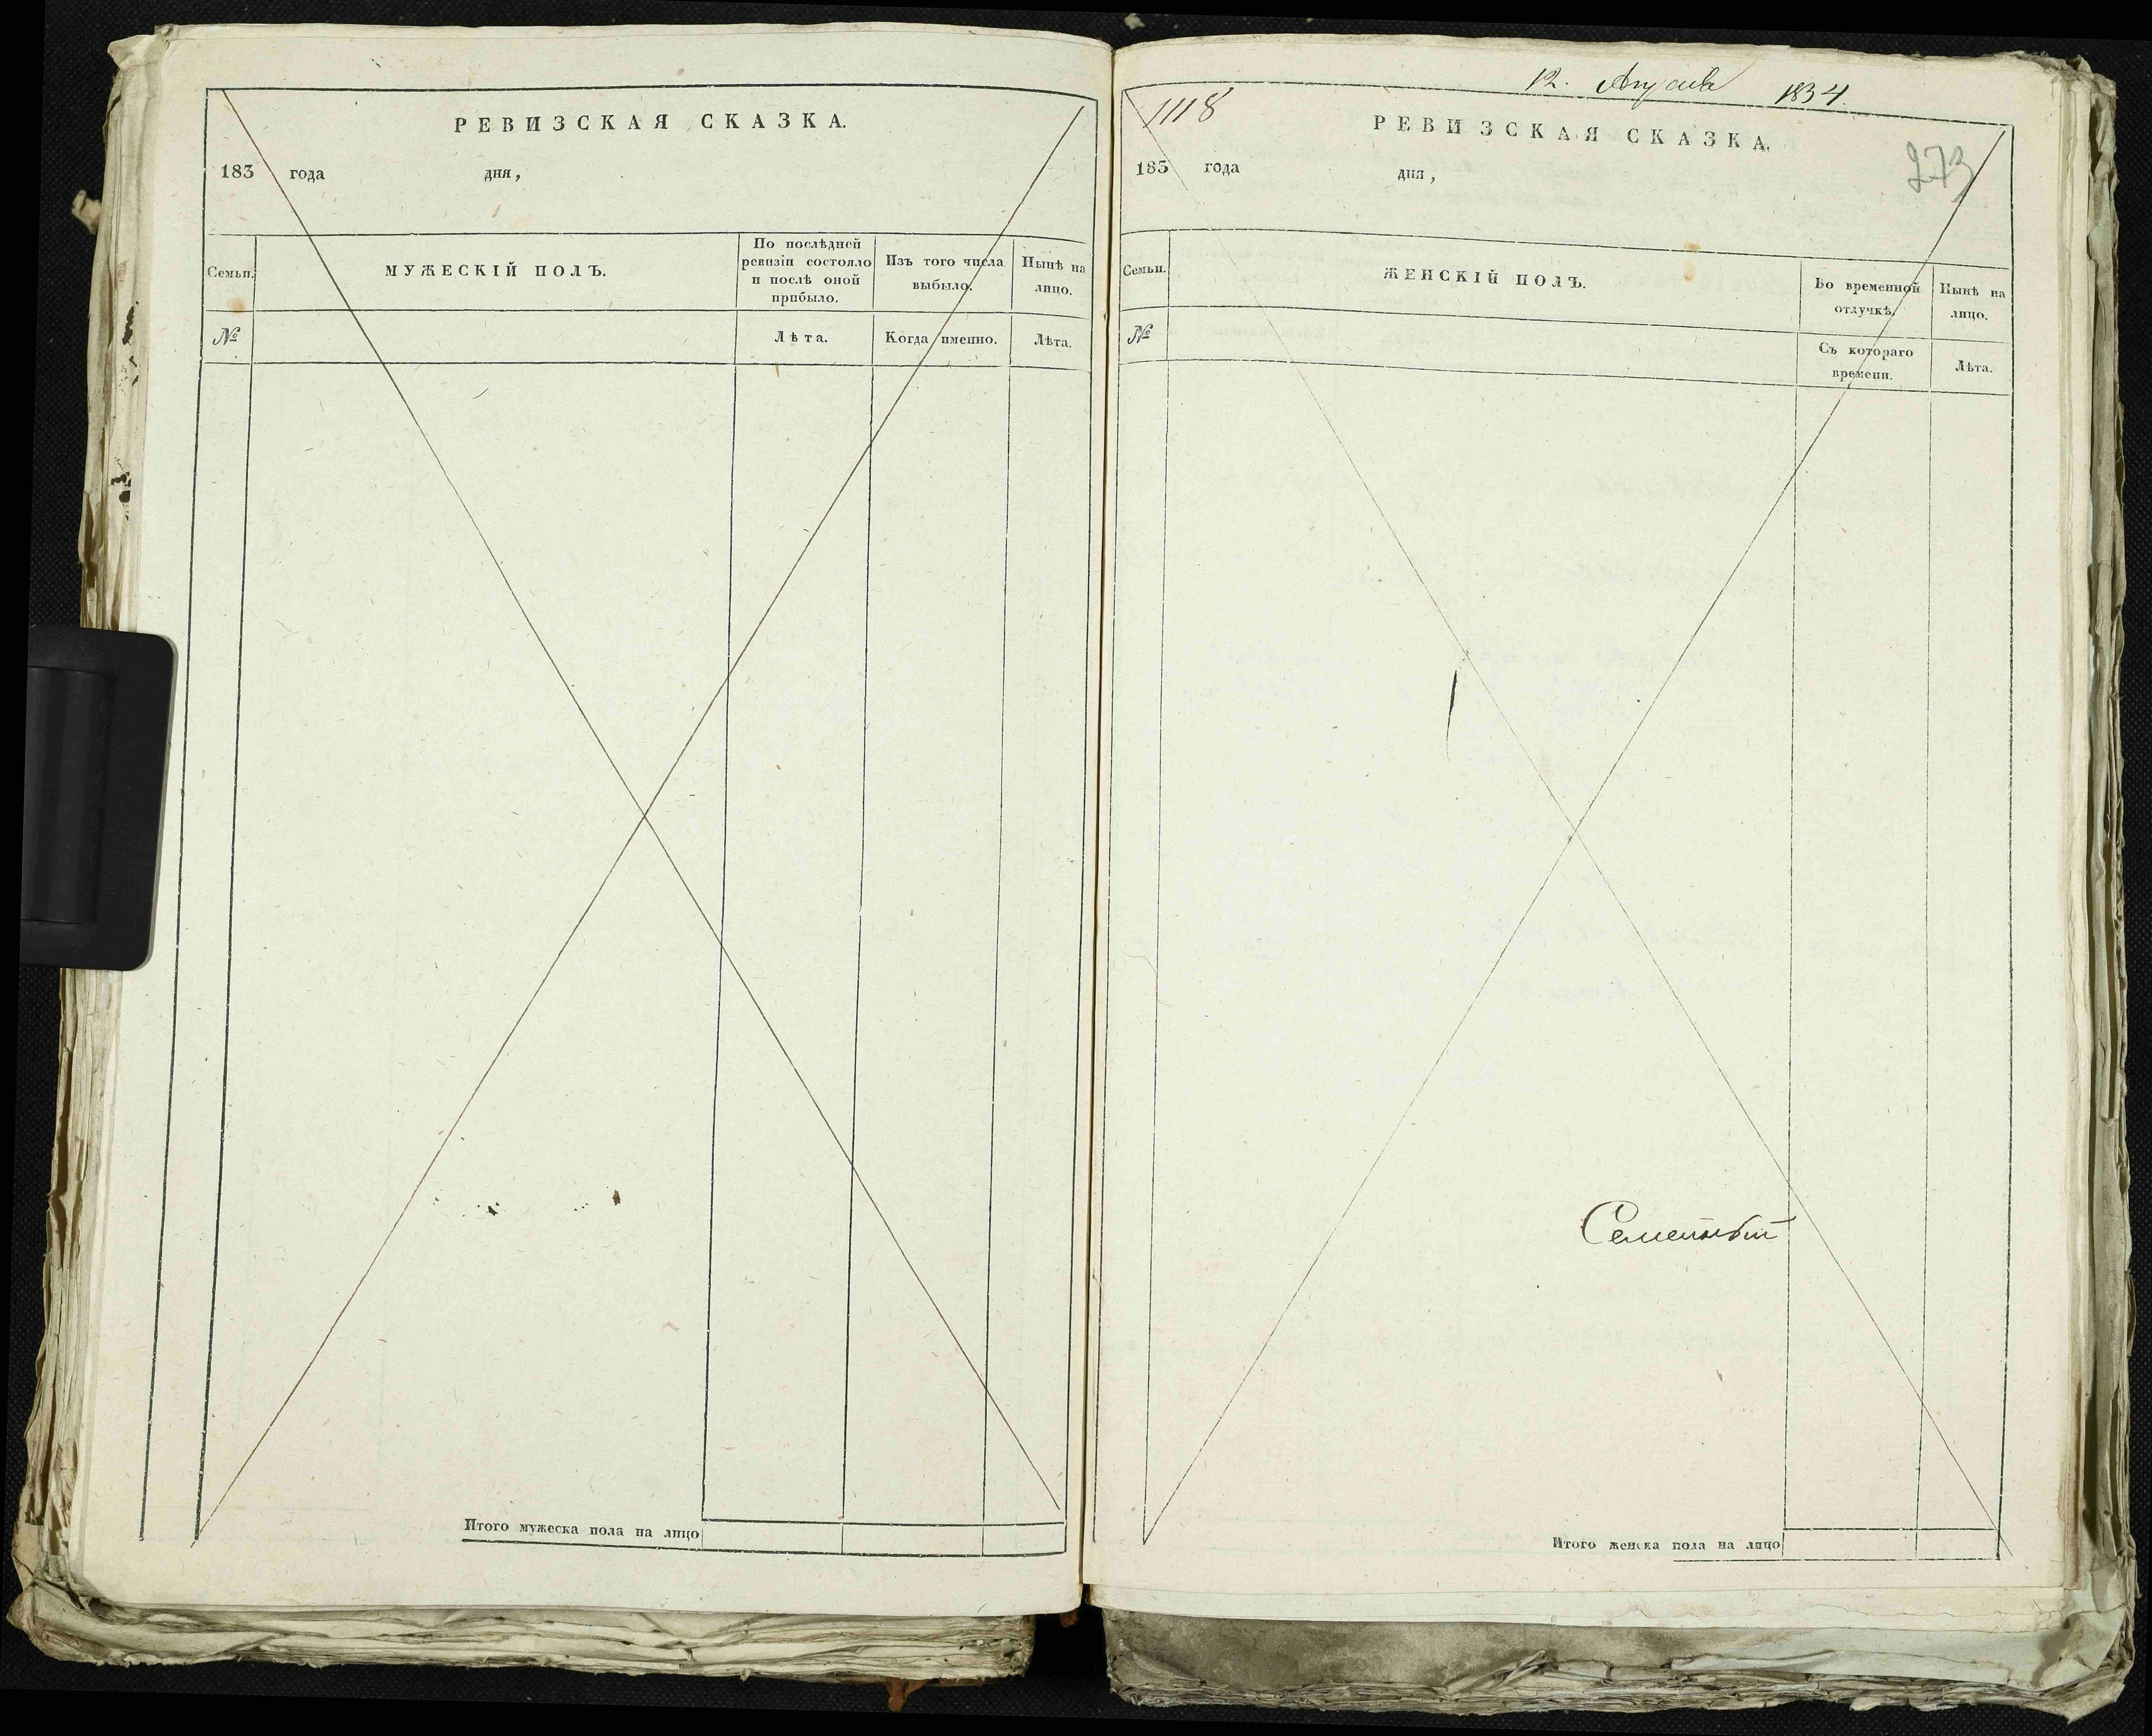 РЕВИЗСКАЯ СКАЗКА.
183 года дня,
Семьи.
МУЖЕСКІЙ ПОЛЪ.
По послѣдней
ревизіи состояло
и послѣ оной
прибыло.
Изъ того числа
выбыло.
Нынѣ на
лицо.
№
Лѣта.
Когда именно.
Лѣта.
Итого мужеска пола на лицо
12. Августа 1834.
1118
РЕВИЗСКАЯ СКАЗКА.
273
183 года дня,
Семьи.
ЖЕНСКІЙ ПОЛЪ.
Во временной
отлучкѣ.
Нынѣ на
лицо.
№
Съ котораго
времени.
Лѣта.
Итого женска пола на лицо